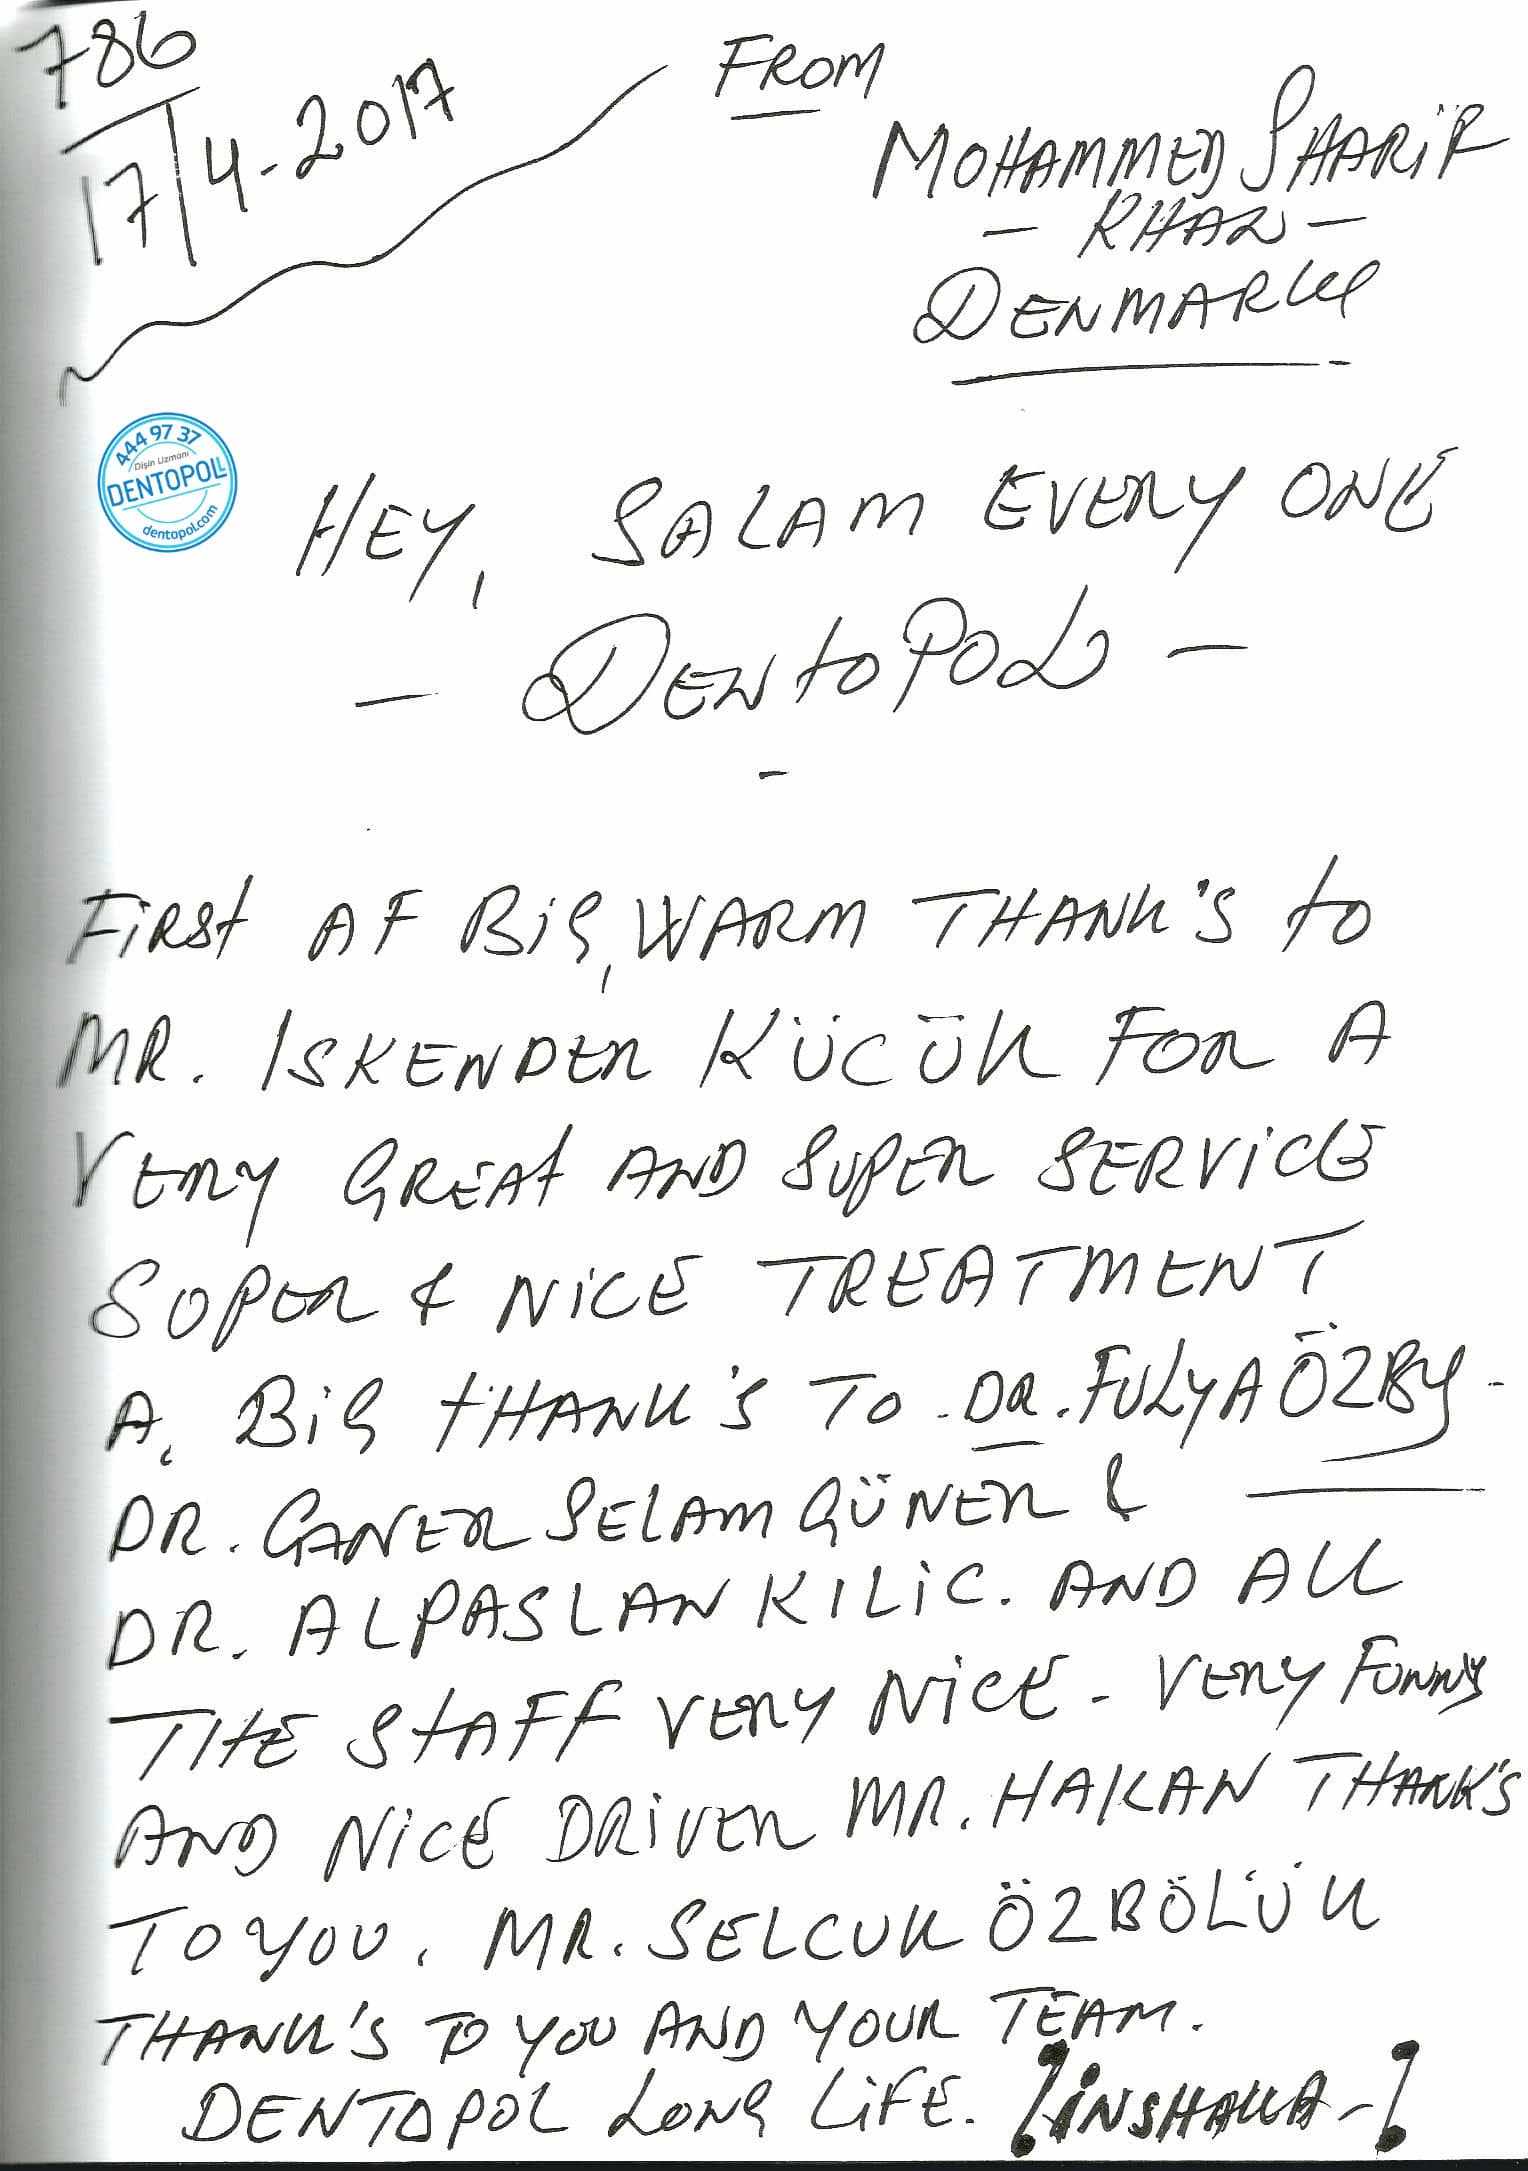 786
17/4-2017
FROM
MOHAMMED SHARiF
- KHAN -
DENMARK
444 97 37
Dişin Uzmanı
DENTOPOL
dentopol.com
HEY, SALAM EVERY ONE
- DENtoPOL -
-
FiRSt AF BiG, WARM THANK'S to
MR. ISKENDER KÜCÜK FOR A
VERY GREAt AND SUPER SERViCE
SOPER & NiCE TREATMENT
A. BiG tHANK'S TO DR. FULYA ÖZBY-
DR. CANER SELAM GÜNER &
DR. ALPASLAN KILiC. AND ALL
THE StAFF VERY NiCE - VERY FUNNY
AND NiCE DRiVER MR. HAKAN THANK'S
TO YOU. MR. SELCUK ÖZBÖLÜK
THANK'S TO YOU AND YOUR TEAM.
DENTOPOL LONG LiFE. ! iNSHALLA - !